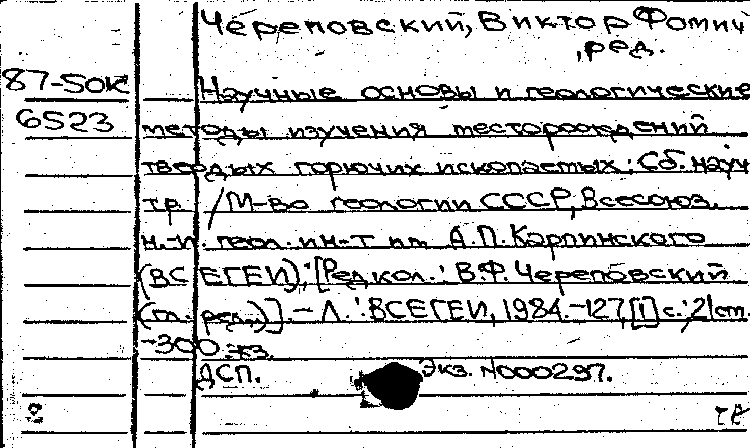 Череповский, Виктор Фомич
, ред.
87-50к Научные основы и геологические
6523 методы изучения месторождений
твердых горючих ископаемых: Сб. науч
тр. /М-во геологии СССР, Всесоюз.
н.-и. геол. ин-т им. А.П. Карпинского
(ВСЕГЕИ); [Редкол.: В.Ф. Череповский
(гл. ред.)]. - Л.: ВСЕГЕИ, 1984. - 127,[1] с.; 21см.
-300 экз.
ДСП. Экз. N000297.